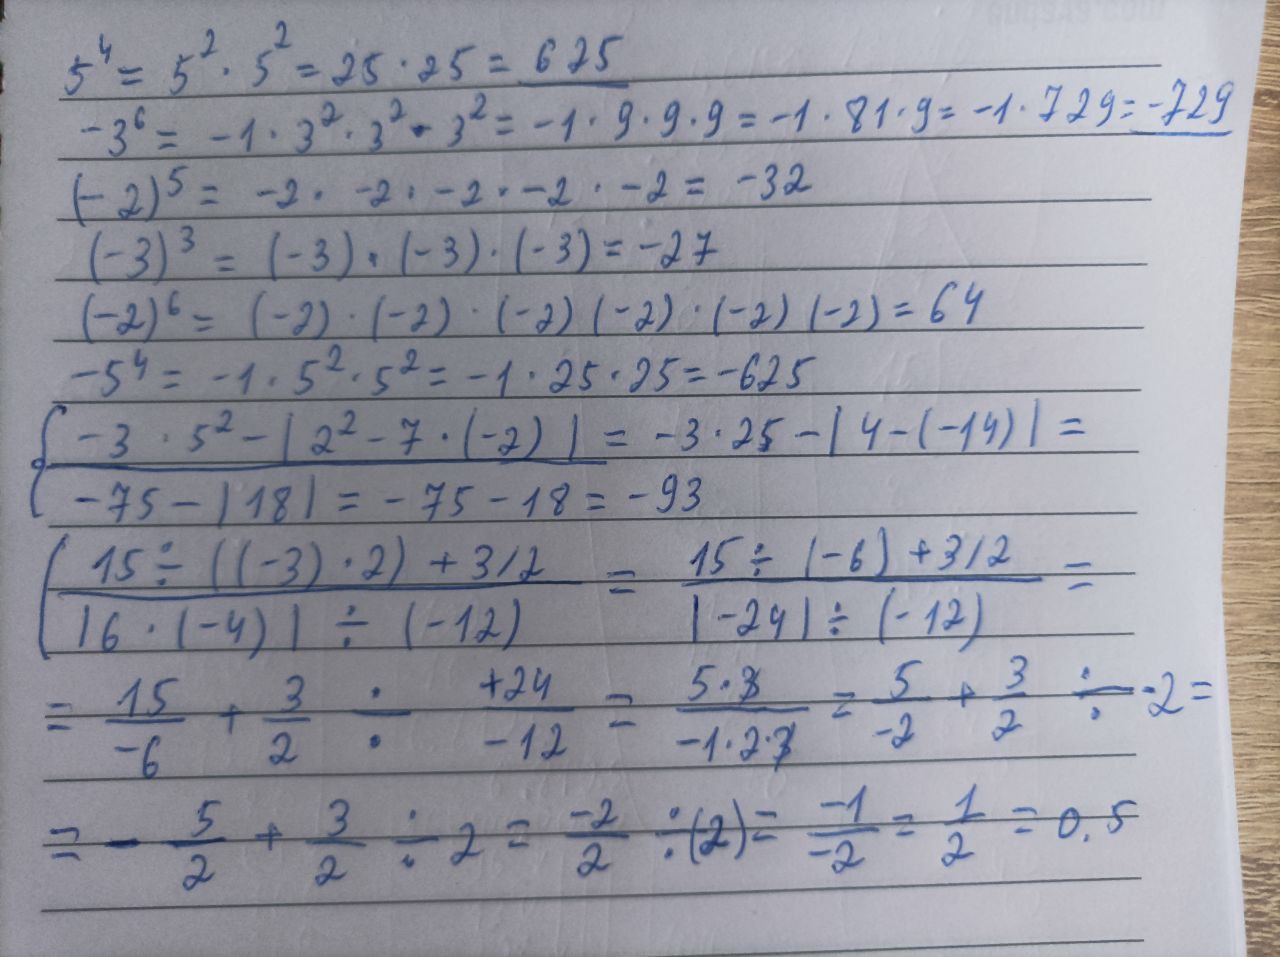 5⁴ = 5² · 5² = 25 · 25 = 625
-3⁶ = -1 · 3² · 3² · 3² = -1 · 9 · 9 · 9 = -1 · 81 · 9 = -1 · 729 = -729
(-2)⁵ = -2 · -2 · -2 · -2 · -2 = -32
(-3)³ = (-3) · (-3) · (-3) = -27
(-2)⁶ = (-2) · (-2) · (-2) (-2) · (-2) (-2) = 64
-5⁴ = -1 · 5² · 5² = -1 · 25 · 25 = -625
-3 · 5² - |2² - 7 · (-2)| = -3 · 25 - |4 - (-14)| =
-75 - |18| = -75 - 18 = -93
15 ÷ ((-3) · 2) + 3/2 = 15 ÷ (-6) + 3/2 =
|6 · (-4)| ÷ (-12) |-24| ÷ (-12)
= 15/-6 + 3/2 ÷ +24/-12 = 5·3/-1·2·3 = 5/-2 + 3/2 ÷ -2 =
= - 5/2 + 3/2 ÷ 2 = -2/2 ÷ (2) = -1/-2 = 1/2 = 0.5